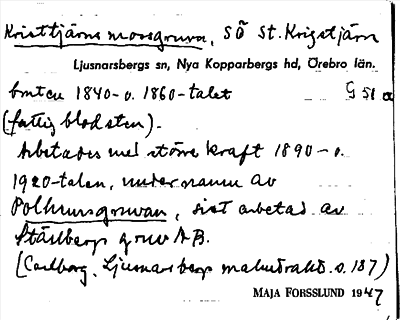 Kristtjärns mossgruva, SÖ St. Krigstjärn
Ljusnarsbergs sn, Nya Kopparbergs hd, Örebro län.
bruten 1840- o. 1860-talet G 51 a
(fattig blodsten).
Arbetades med större kraft 1890- o.
1920-talen, under namn av
Polhemsgruvan, sist arbetad av
Ställbergs gruv AB.
(Carlborg, Ljusnarsbergs malmtrakt s. 187)
MAJA FORSSLUND 1947